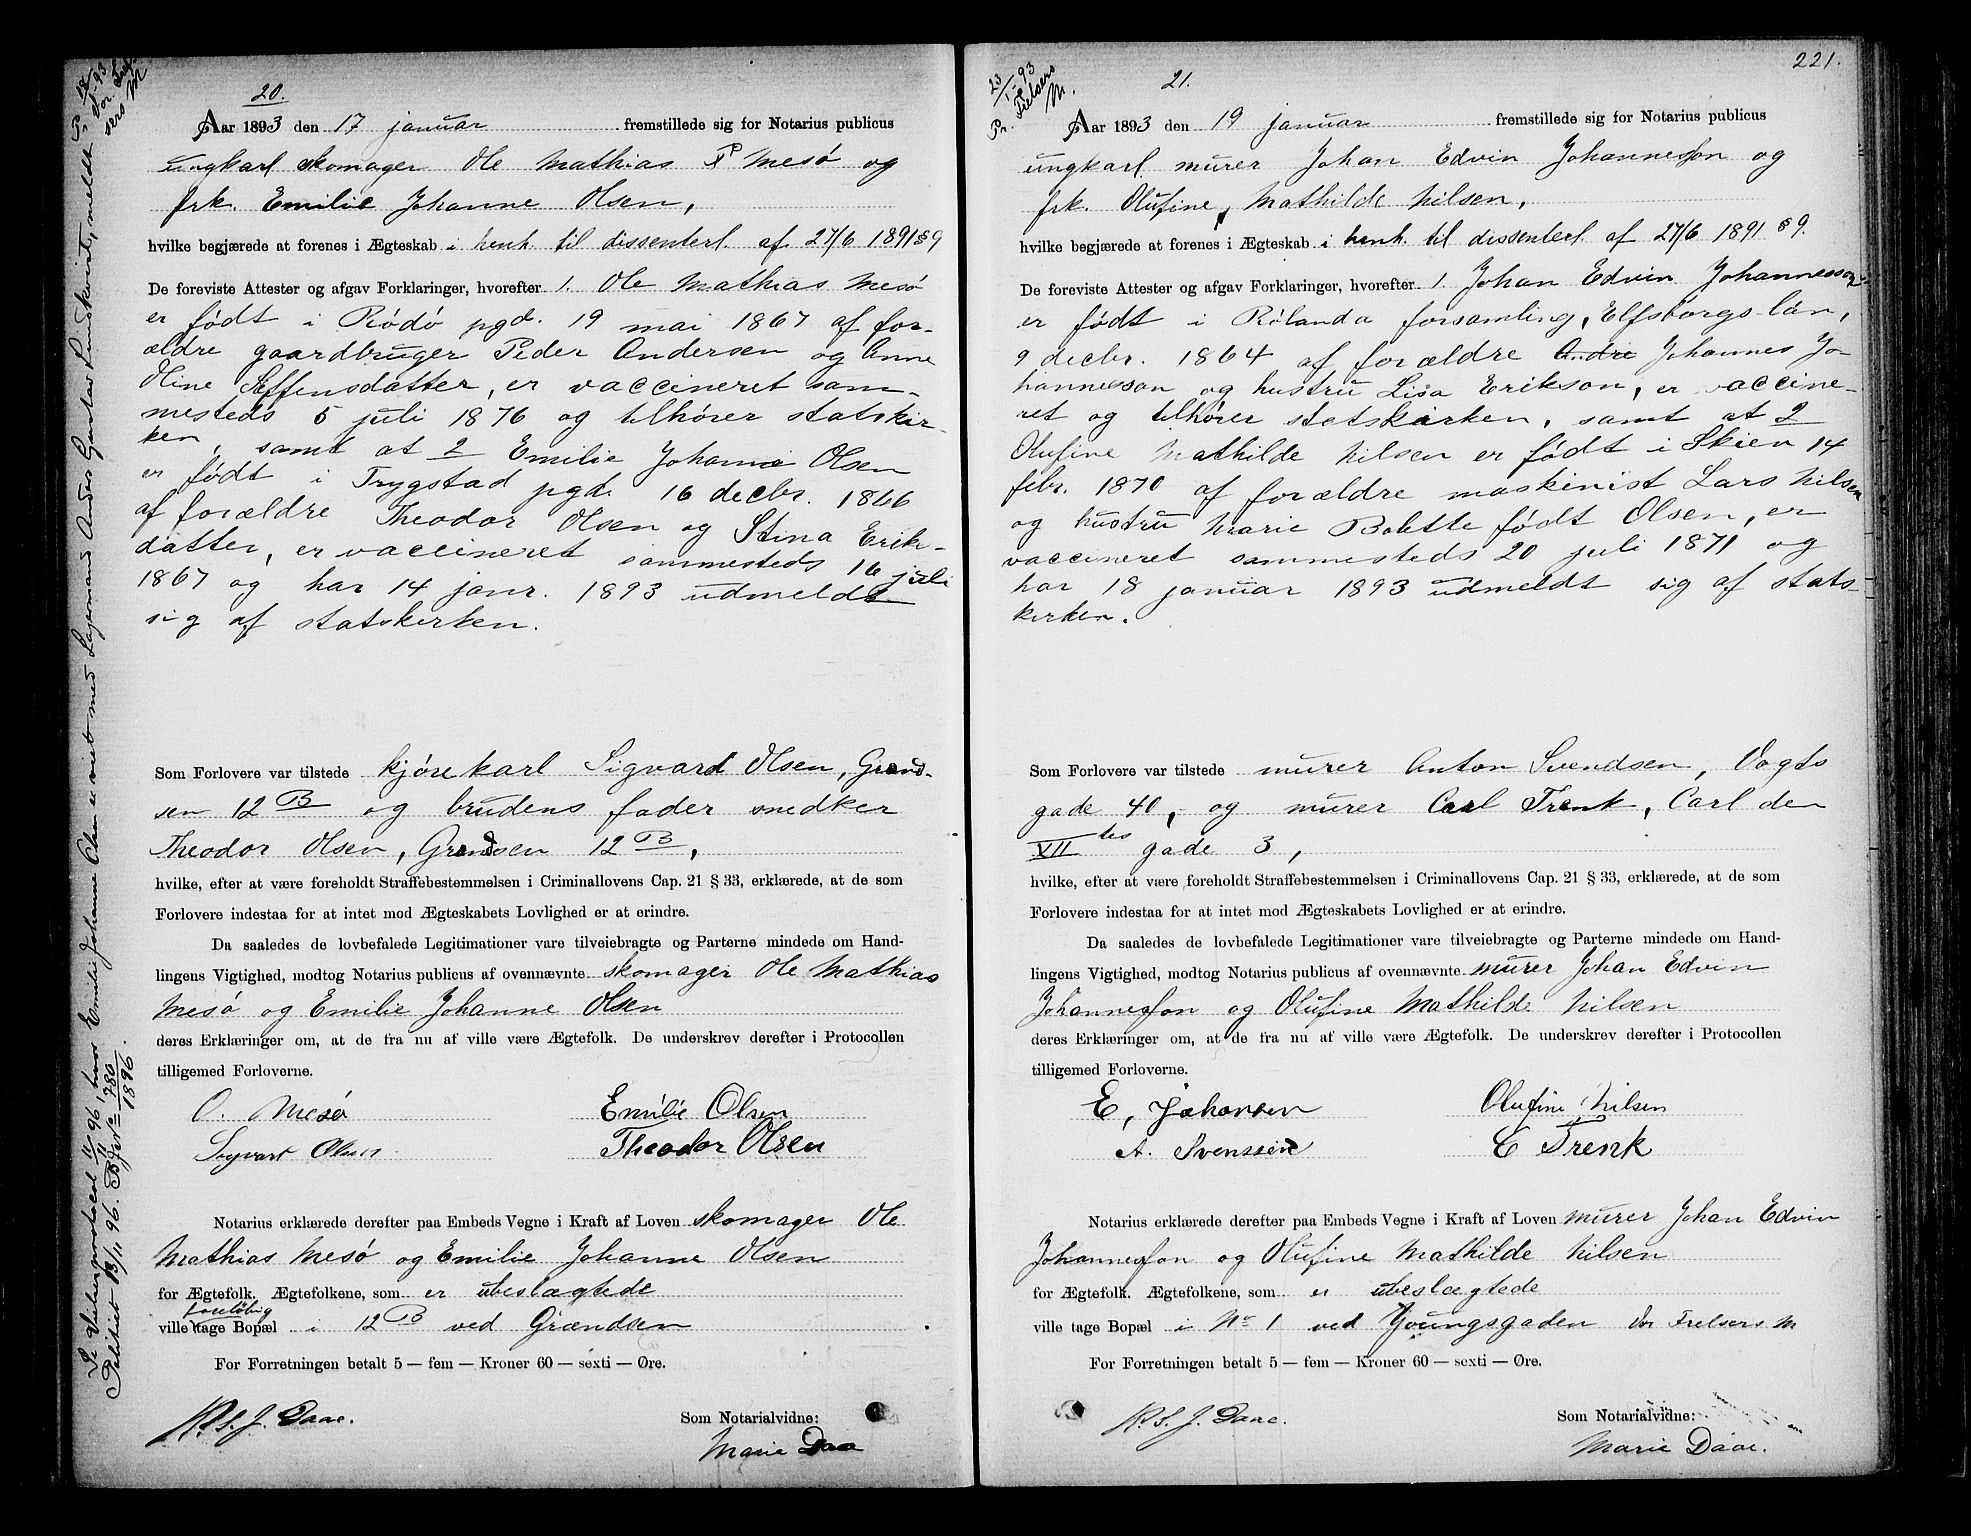 20.
Aar 1893 den 17 januar fremstillede sig for Notarius publicus
ungkarl skomager Ole Mathias P Mesø og
frk. Emilie Johanne Olsen,
hvilke begjærede at forenes i Ægteskab i henh. til dissenterl. af 27/6 1891 § 9
De foreviste Attester og afgav Forklaringer, hvorefter 1. Ole Mathias Mesø
er født i Rödö pgd. 19 mai 1867 af for-
ældre gaardbruger Peder Andersen og Anne
Oline Steffensdatter, er vaccineret sam-
mesteds 5 juli 1876 og tilhører statskir-
ken, samt at 2 Emilie Johanne Olsen
er født i Trygstad pgd. 16 decbr. 1866
af forældre Theodor Olsen og Stina Eriks-
datter, er vaccineret sammesteds 16 juli
1867 og har 14 janr. 1893 udmeldt
sig af statskirken.
Som Forlovere var tilstede kjørekarl Sigvard Olsen, Grænd-
sen 12 B og brudens fader snedker
Theodor Olsen, Grændsen 12 B,
hvilke, efter at være foreholdt Straffebestemmelsen i Criminallovens Cap. 21 § 33, erklærede, at de som
Forlovere indestaa for at intet mod Ægteskabets Lovlighed er at erindre.
Da saaledes de lovbefalede Legitimationer vare tilveiebragte og Parterne mindede om Hand-
lingens Vigtighed, modtog Notarius publicus af ovennævnte skomager Ole Mathias
Mesø og Emilie Johanne Olsen
deres Erklæringer om, at de fra nu af ville være Ægtefolk. De underskrev derefter i Protocollen
tilligemed Forloverne.
O. Mesø Emilie Olsen
Sigvart Olsen Theodor Olsen
Notarius erklærede derefter paa Embeds Vegne i Kraft af Loven skomager Ole
Mathias Mesø og Emilie Johanne Olsen
for Ægtefolk. Ægtefolkene, som er ubeslægtede
foreløbig
ville tage Bopæl i 12 B ved Grændsen
For Forretningen betalt 5 — fem — Kroner 60 — sexti — Øre.
Daae.
Som Notarialvidne:
Marie Daae
Se Vielsesprotocol 11/11 96, hvor Emilie Johanne Olsen er viet med Anders Gustav
Politiet 13/11 96. 780/1896.
221.
23/1-93
Pr. Frelsers
M.
21.
Aar 1893 den 19 januar fremstillede sig for Notarius publicus
ungkarl murer Johan Edvin Johannesson og
frk. Olufine Mathilde Nilsen,
hvilke begjærede at forenes i Ægteskab i henh. til dissenterl. af 27/6 1891 § 9.
De foreviste Attester og afgav Forklaringer, hvorefter 1. Johan Edvin Johannesson
er født i Rölanda forsamling, Elfsborgs län,
9 decbr. 1864 af forældre Andre Johannes Jo-
hannesson og hustru Lisa Erikson, er vaccine-
ret og tilhører statskirken, samt at 2
Olufine Mathilde Nilsen er født i Skien 14
febr. 1870 af forældre maskinist Lars Nilsen
og hustru Marie Bolette født Olsen, er
vaccineret sammesteds 20 juli 1871 og
har 18 januar 1893 udmeldt sig af stats-
kirken.
Som Forlovere var tilstede murer Anton Svendsen, Vogts
gade 40, og murer Carl Trenk, Carl den
XIItes gade 3,
hvilke, efter at være foreholdt Straffebestemmelsen i Criminallovens Cap. 21 § 33, erklærede, at de som
Forlovere indestaa for at intet mod Ægteskabets Lovlighed er at erindre.
Da saaledes de lovbefalede Legitimationer vare tilveiebragte og Parterne mindede om Hand-
lingens Vigtighed, modtog Notarius publicus af ovennævnte murer Johan Edvin
Johannesson og Olufine Mathilde Nilsen
deres Erklæringer om, at de fra nu af ville være Ægtefolk. De underskrev derefter i Protocollen
tilligemed Forloverne.
E, Johansen Olufine Nilsen
A. Svenssen C Trenk
Notarius erklærede derefter paa Embeds Vegne i Kraft af Loven murer Johan Edvin
Johannesson og Olufine Mathilde Nilsen
for Ægtefolk. Ægtefolkene, som er ubeslægtede
ville tage Bopæl i No 1 ved Youngsgaden Vor Frelsers M
For Forretningen betalt 5 — fem — Kroner 60 — sexti — Øre.
Daae.
Som Notarialvidne:
Marie Daae.